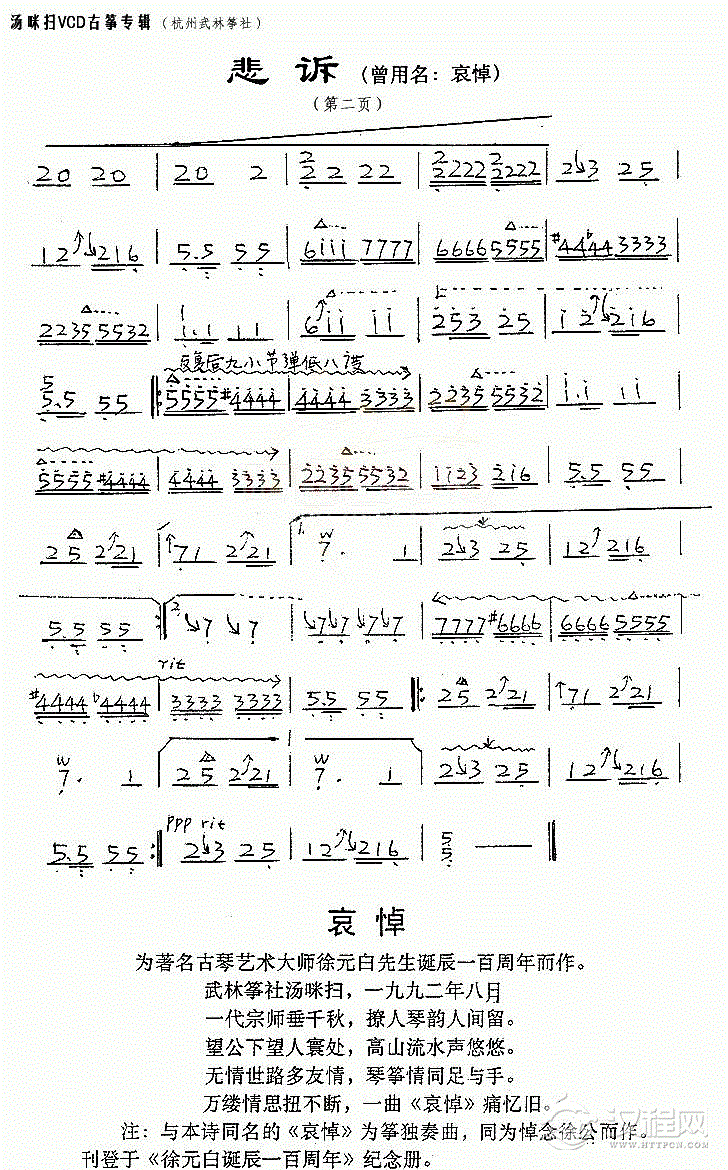 汤咪扫VCD古筝专辑（杭州武林筝社）
悲诉（曾用名：哀悼）
（第二页）
20 20 | 20 2 | 2 2 2 22 | 2 2222 2 2222 | 2 3 25 |
12 216 | 5.5 55 | 6111 7777 | 6666 5555 | #44b44 3333 |
2235 5532 | 1.1 11 | 611 11 | 253 25 | 12 216 |
反复后九小节弹低八度
5 5.5 55 |: 5555 #4444 | 4444 3333 | 2235 5532 | 1.1 11 |
5555 #4444 | 4444 3333 | 2235 5532 | 1123 216 | 5.5 55 |
25 221 | 71 221 | 1. W 7. 1 | 2 3 25 | 12 216 |
5.5 55 :| 2. 7 7 | 7 7 7 7 | 7777 #6666 | 6666 5555 |
rit
#4444 b4444 | 3333 3333 | 5.5 55 |: 25 221 | 71 221 |
W 7. 1 | 25 221 | W 7. 1 | 2 3 25 | 12 216 |
ppp rit
5.5 55 :| 2 3 25 | 12 216 | 5 5 — |
哀悼
为著名古琴艺术大师徐元白先生诞辰一百周年而作。
武林筝社汤咪扫，一九九二年八日
一代宗师垂千秋，撩人琴韵人间留。
望公下望人寰处，高山流水声悠悠。
无情世路多友情，琴筝情同足与手。
万缕情思扭不断，一曲《哀悼》痛忆旧。
注：与本诗同名的《哀悼》为筝独奏曲，同为悼念徐公而作。
刊登于《徐元白诞辰一百周年》纪念册。
汉程网